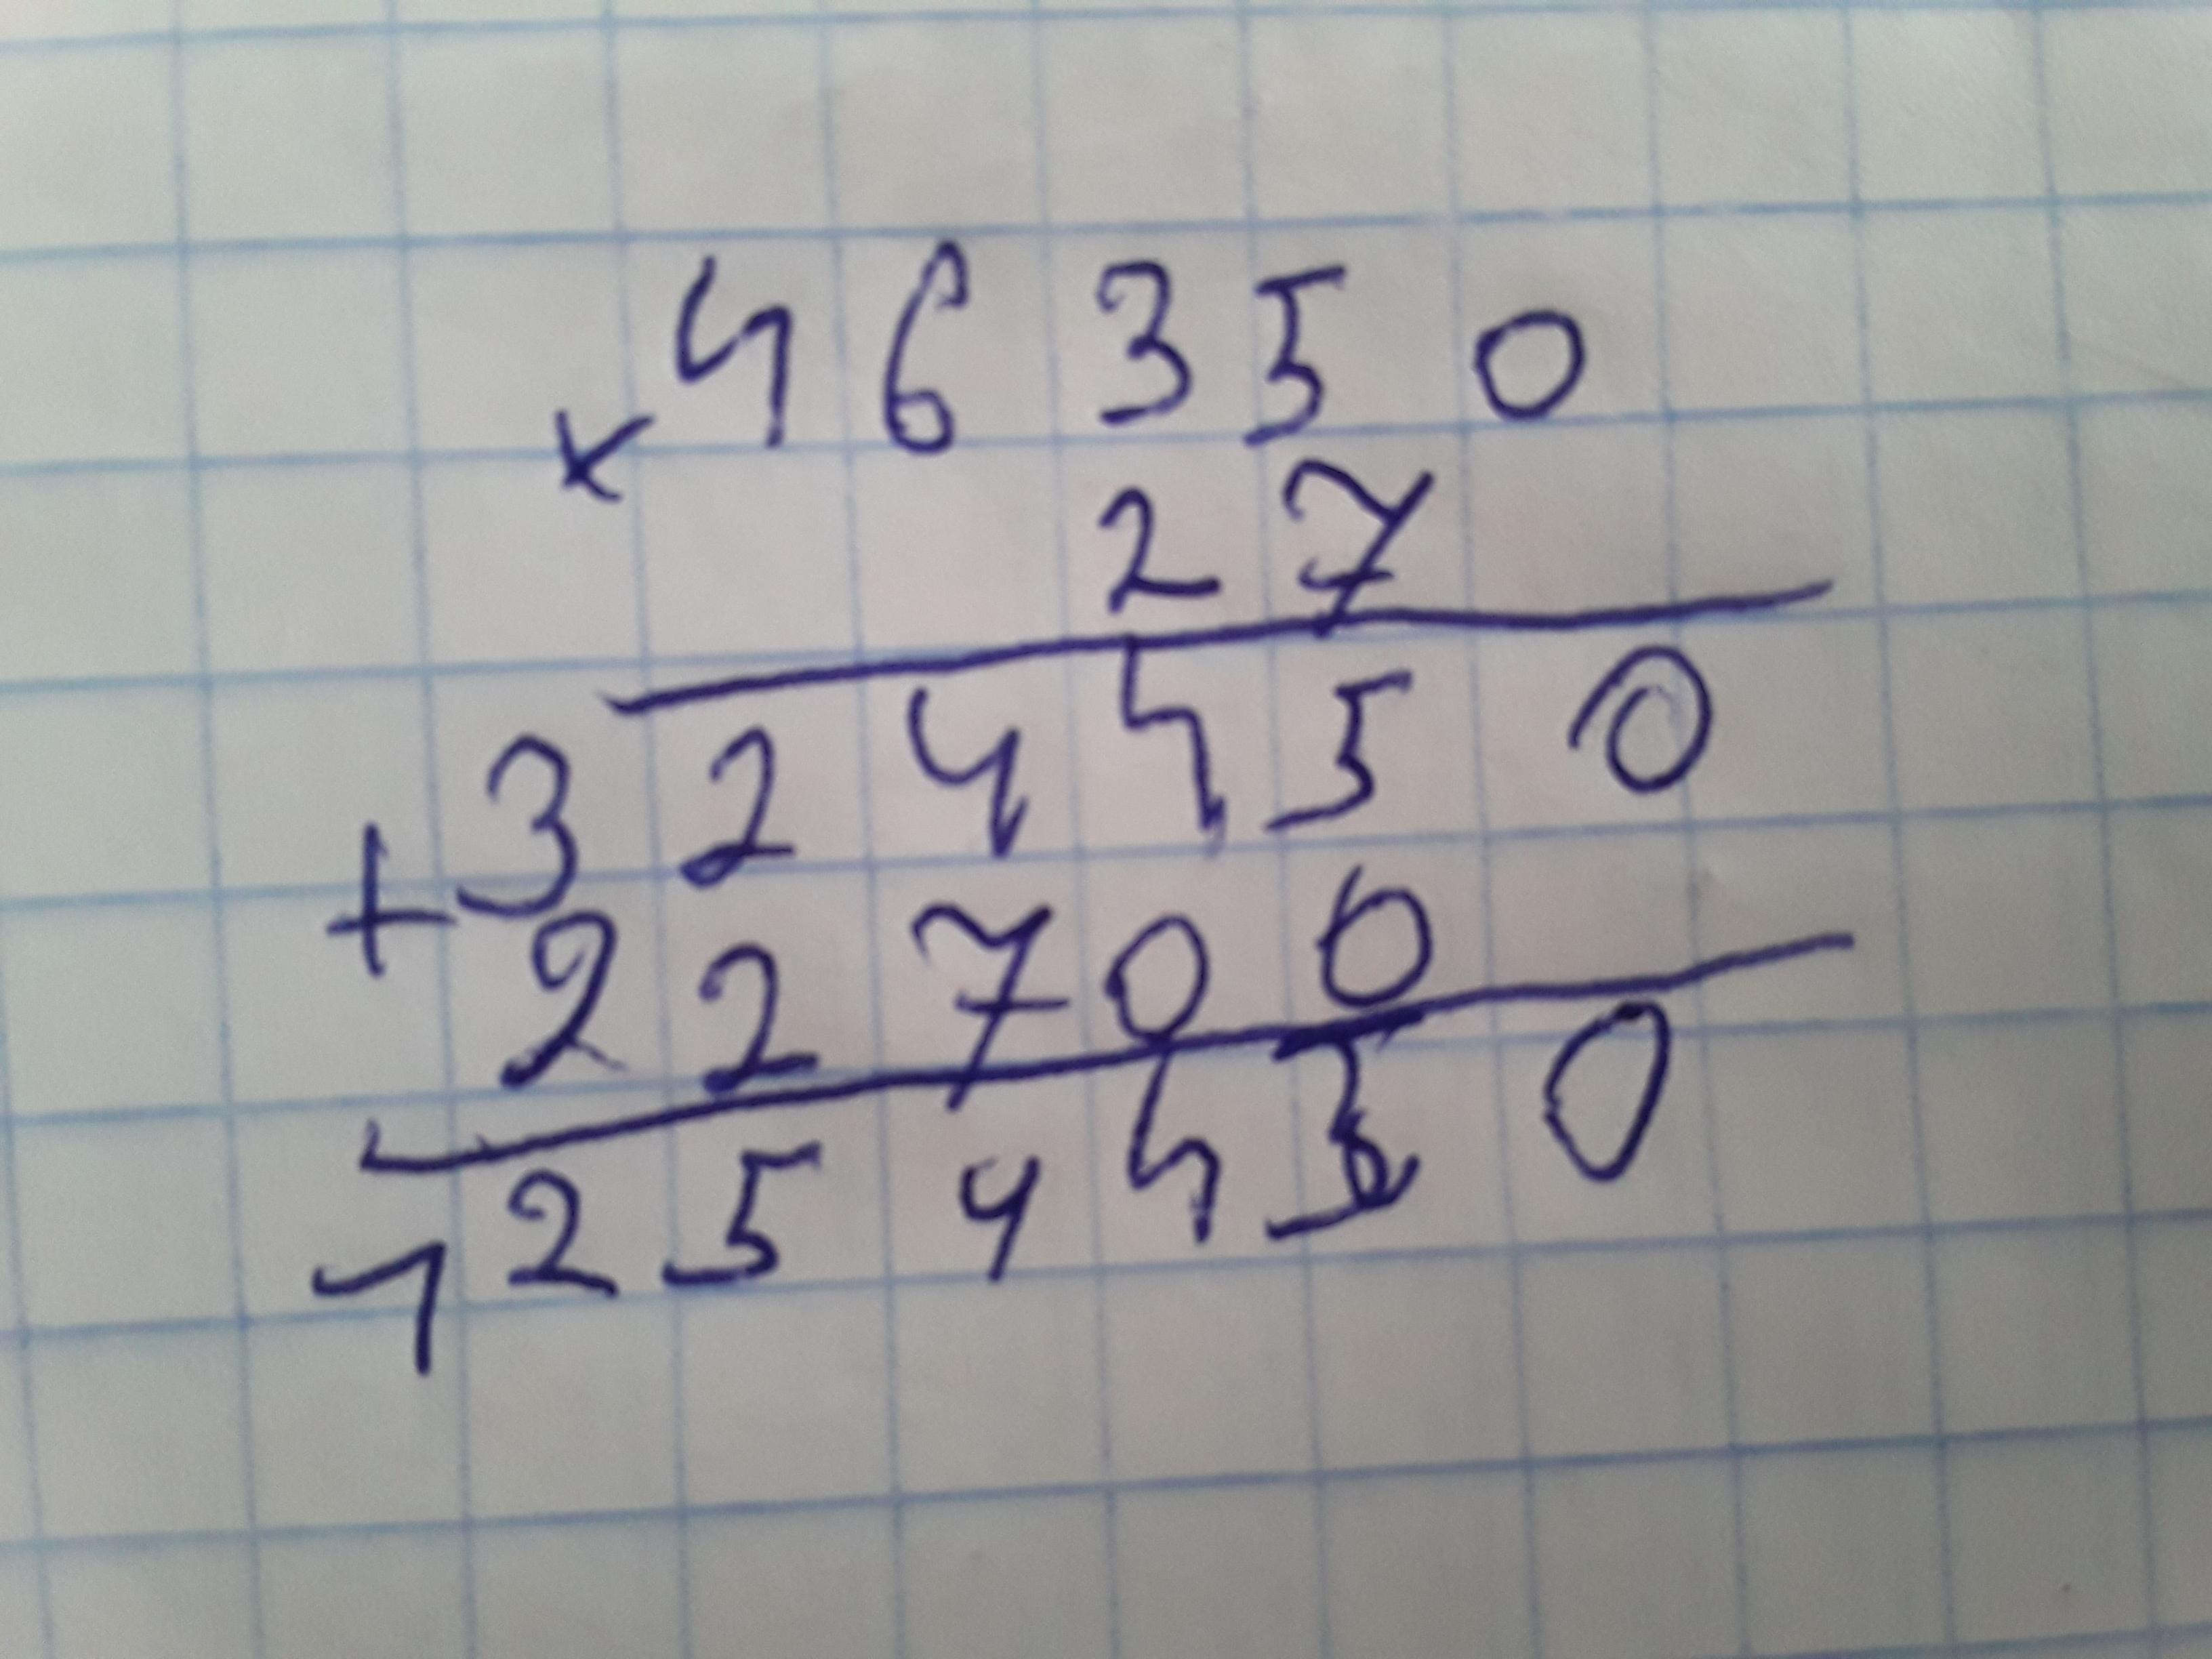 46350
× 27
324450
+ 22700
1254450